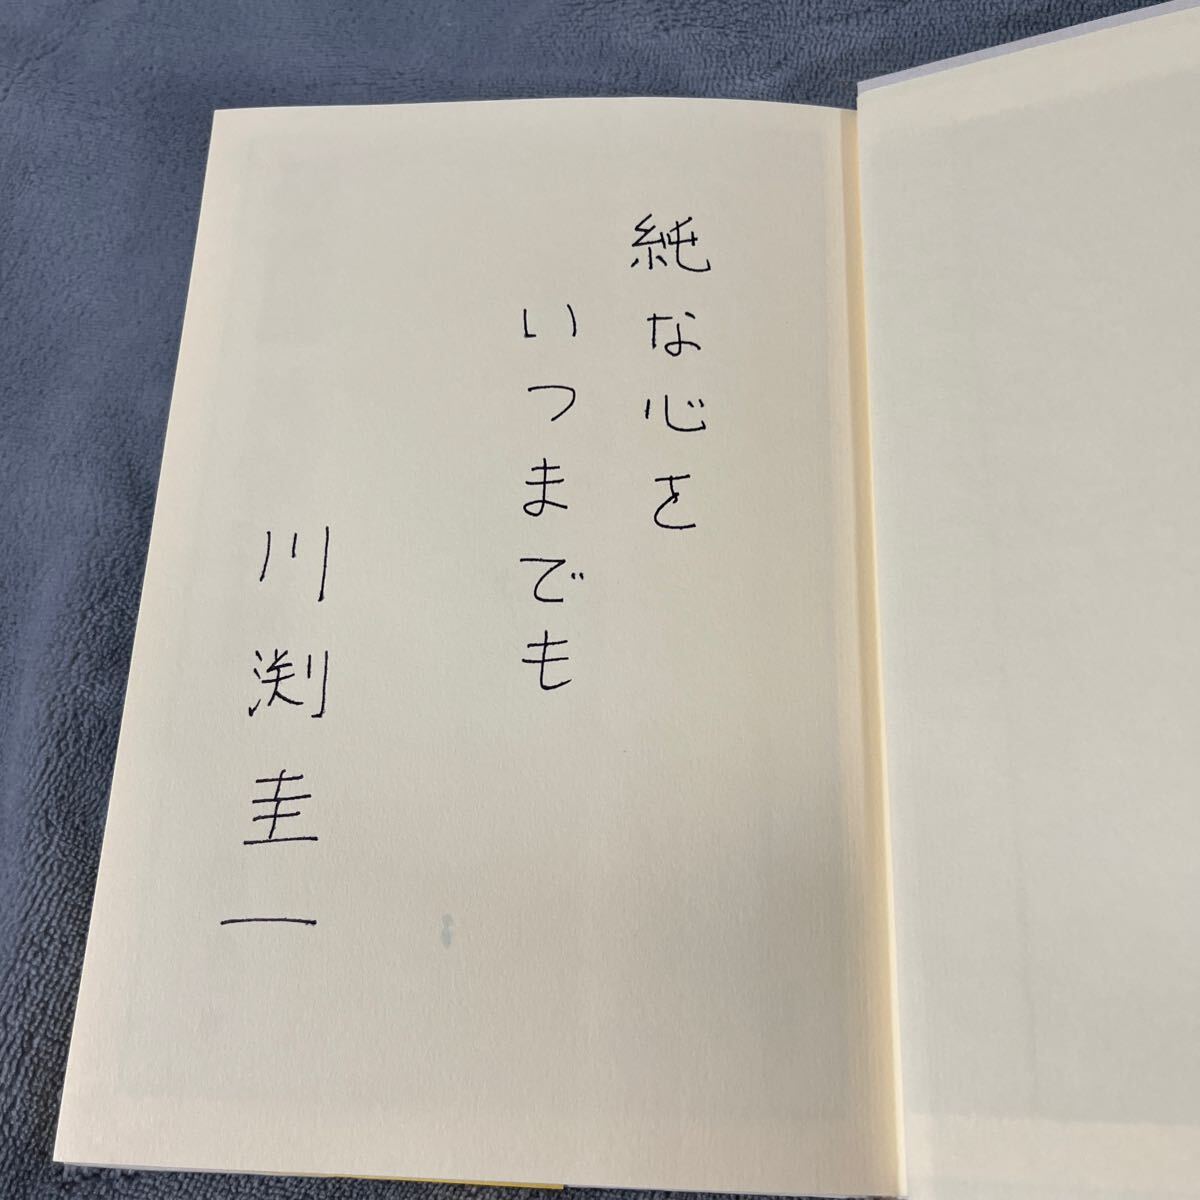 純な心を
いつまでも
川渕圭一